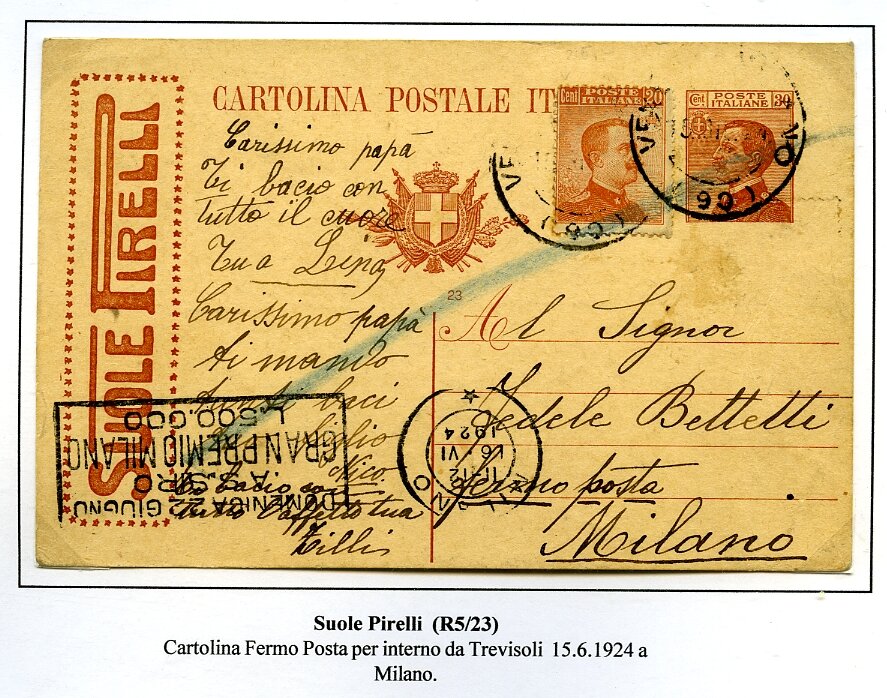 SUOLE PIRELLI
CARTOLINA POSTALE IT
Cent POSTE ITALIANE 20
Cent POSTE ITALIANE 30
VE
(90)
VE VO
(90)
Carissimo papà
Ti bacio con
tutto il cuore
Tua Lina
23
Carissimo papà
ti mando
baci
Nico
bacio
tutto l'affetto tua
Lilli
Al Signor
Fedele Bettetti
fermo posta
Milano
MILANO
11-12
16·VI
1924
DOMENICA GIUGNO
A S. SIRO
GRAN PREMIO MILANO
L. 500.000
Suole Pirelli (R5/23)
Cartolina Fermo Posta per interno da Trevisoli 15.6.1924 a
Milano.